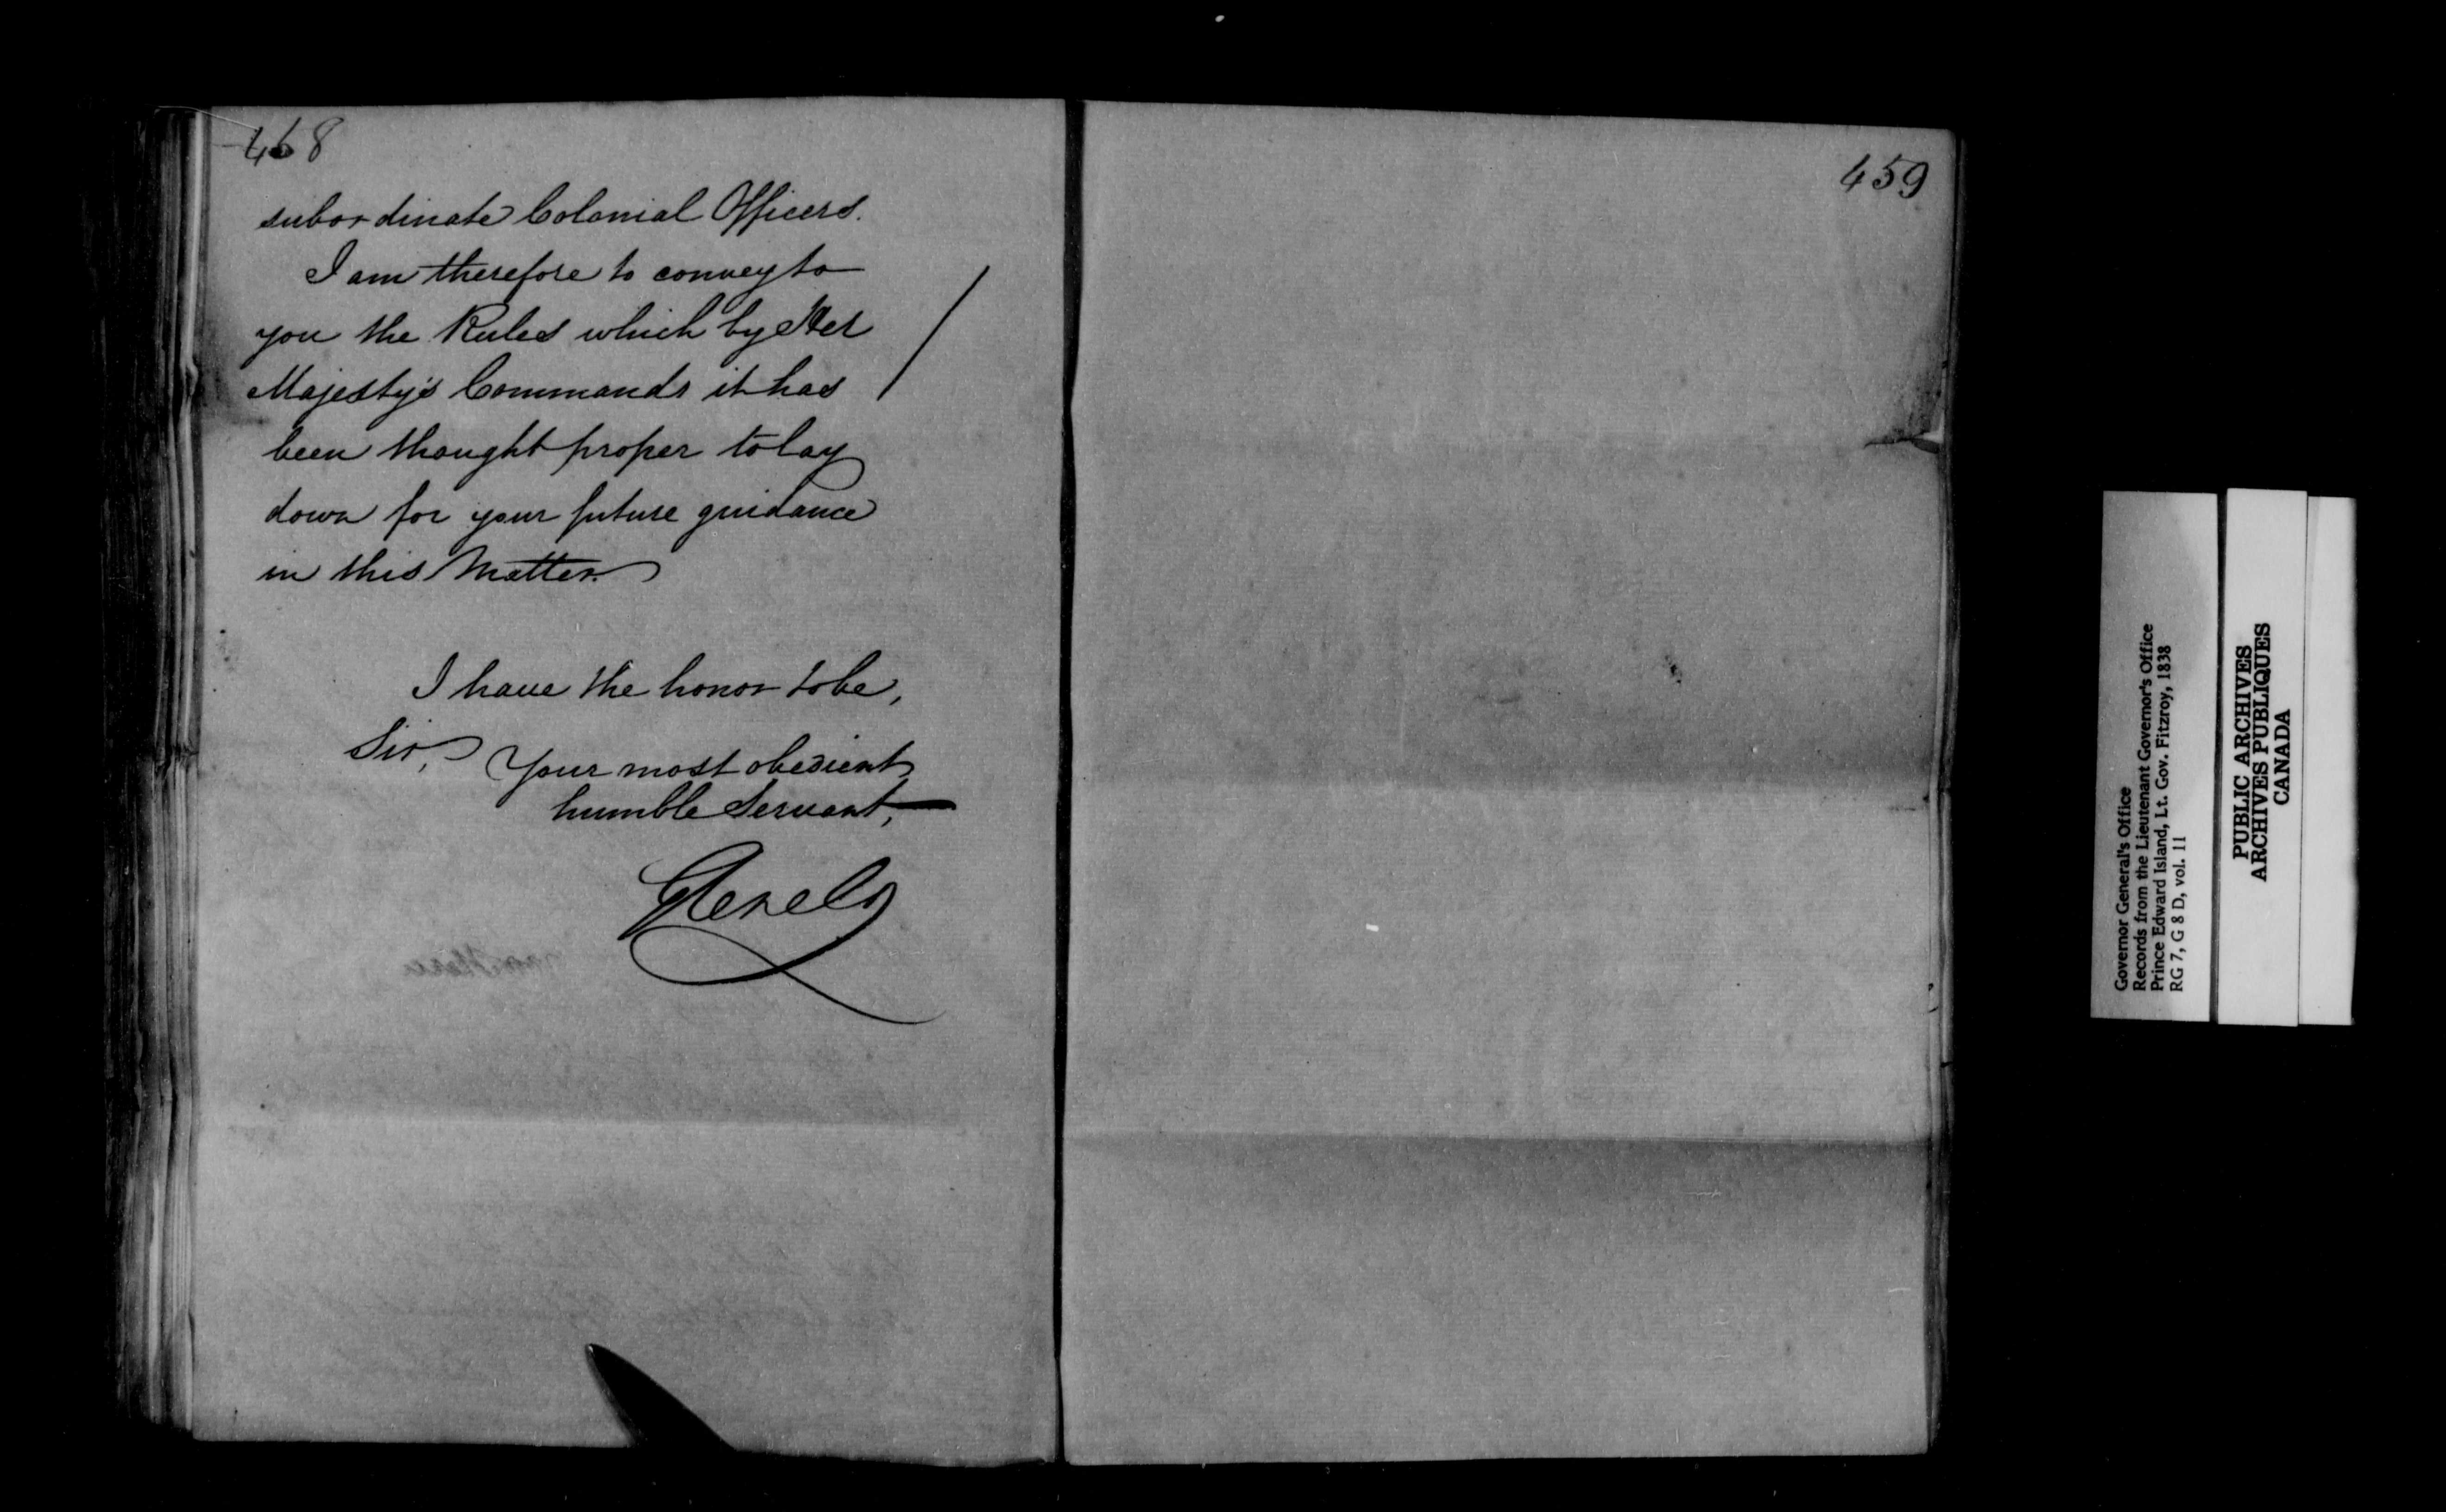 468
subordinate Colonial Officers.
I am therefore to convey to
you the Rules which by Her
Majesty's Commands it has
been thought proper to lay
down for your future guidance
in this Matter.
I have the honor to be,
Sir,
Your most obedient
humble Servant,
Glenelg
459
Governor General's Office
Records from the Lieutenant Governor's Office
Prince Edward Island, Lt. Gov. Fitzroy, 1838
RG 7, G 8 D, vol. 11
PUBLIC ARCHIVES
ARCHIVES PUBLIQUES
CANADA